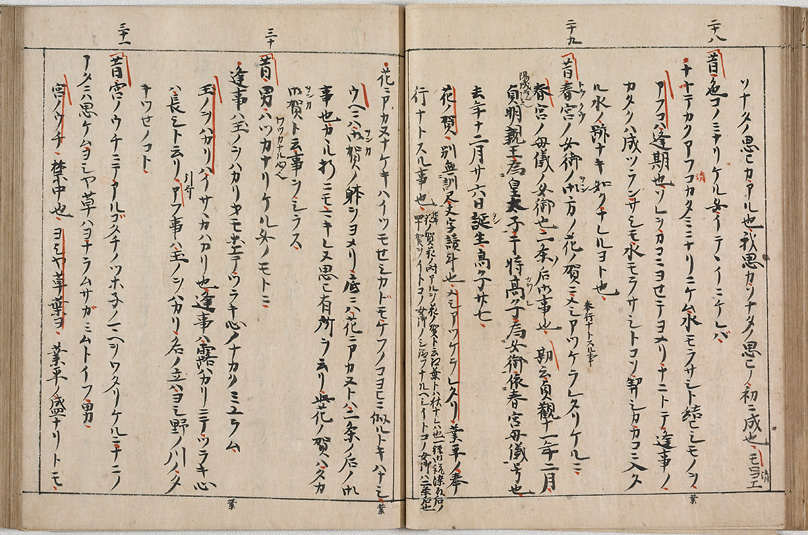 ソナタノ思ヒカアル也我思カソナタノ思ヒノ初ニ成也
二十八
昔色コノミナリケル女イテヽイニケレバ
ナトテカクアフコカタミニナリニケム水モラサシト結ヒシモノヲ
アフコハ逢期也ソレヲカコニヨセテヨメリナニトテ逢事ノ
カタクハ成ツランサシモ水モラサシトコソ契シカカコニ入タ
ル水ノ跡ナキ如クチレルヨト也
二十九
昔春宮ノ女御ノ御方ノ花ノ賀ニメシアツケラレタリケルニ
春宮ノ母儀ノ女御也二条后ノ御事也 勘云貞観十一年二月
貞明親王為皇太子于時高子為女御依春宮母儀号也
去年十二月廿六日誕生高子廿七
花賀 別無訓只文字読斗也 メシアツケラレタリ 業平ノ奉
行ナトスル事也
花ニアカヌナケキハイツモセシカドモケフノコヨヒニ似ルトキハナシ
ウヘニハ御賀ノ躰ヲヨメリ底ニハ花ニアカヌトハ二条ノ后ノ御
事也カヽル折ニモ思ヒ有所ヲ云リ此花ノ賀ハタカ
御賀ト云事ヲシラス
三十
昔男ハツカナリケル女ノモトニ
逢事ハ玉ノヲハカリオモホエテツラキ心ノナカクミユラム
玉ノヲハカリハイサヽカハカリ也逢事ハ露ハカリニテツラキ心
ハ長シト云リアフ事ハ玉ノヲハカリ名ノ立ハヨシ野ノ川ノタ
キツセノコト
三十一
昔宮ノウチニテアルコタチノツホネノマヘヲワタリケルニナニノ
アタニカ思ケムヨシヤ草ハヨナラムサガミムトイフ男
宮ノウチ 禁中也 ヨシヤ草葉ヨ 業平ノ盛ナリトモ